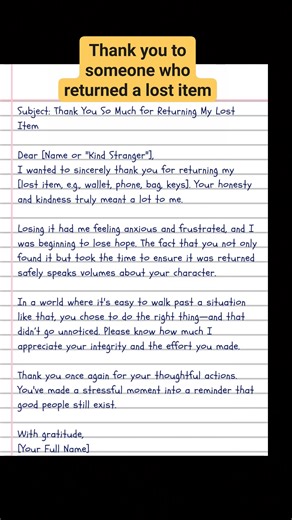 Thank you to
someone who
returned a lost item
Subject: Thank You So Much for Returning My Lost
Item
Dear [Name or "Kind Stranger"],
I wanted to sincerely thank you for returning my
[lost item, e.g., wallet, phone, bag, keys]. Your honesty
and kindness truly meant a lot to me.
Losing it had me feeling anxious and frustrated, and I
was beginning to lose hope. The fact that you not only
found it but took the time to ensure it was returned
safely speaks volumes about your character.
In a world where it's easy to walk past a situation
like that, you chose to do the right thing—and that
didn't go unnoticed. Please know how much I
appreciate your integrity and the effort you made.
Thank you once again for your thoughtful actions.
You've made a stressful moment into a reminder that
good people still exist.
With gratitude,
[Your Full Name]